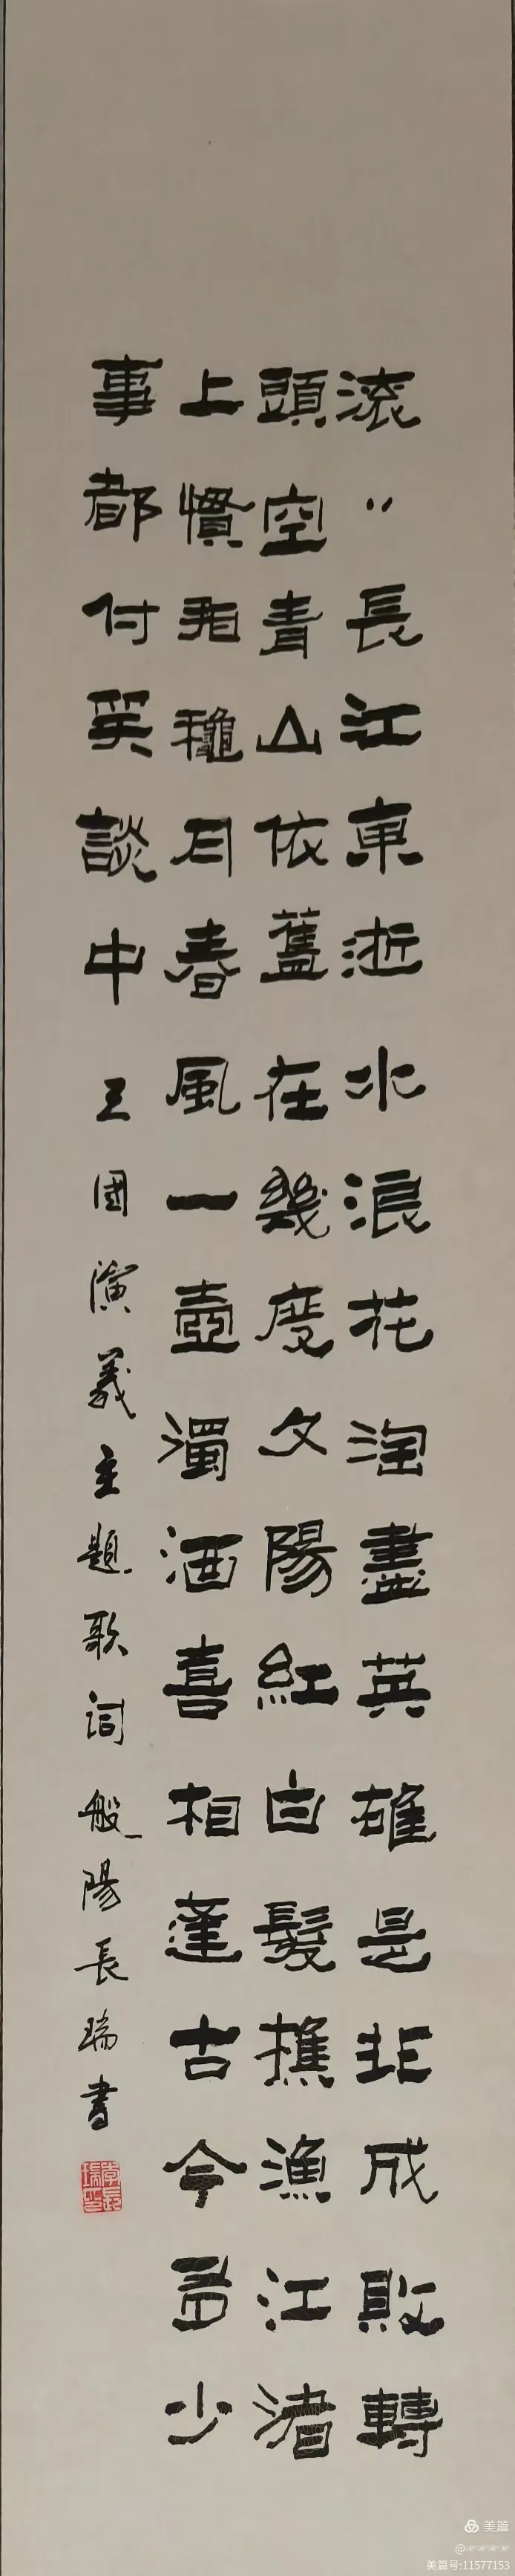 滚〃長江東逝水浪花淘盡英雄是非成敗轉
頭空青山依舊在幾度夕陽紅白髮樵漁江渚
上慣看龝月春風一壺濁酒喜相逢古今多少
事都付笑談中 三國演義主題歌詞 般陽長瑞書
李長瑞印
美篇
美篇号:11577153